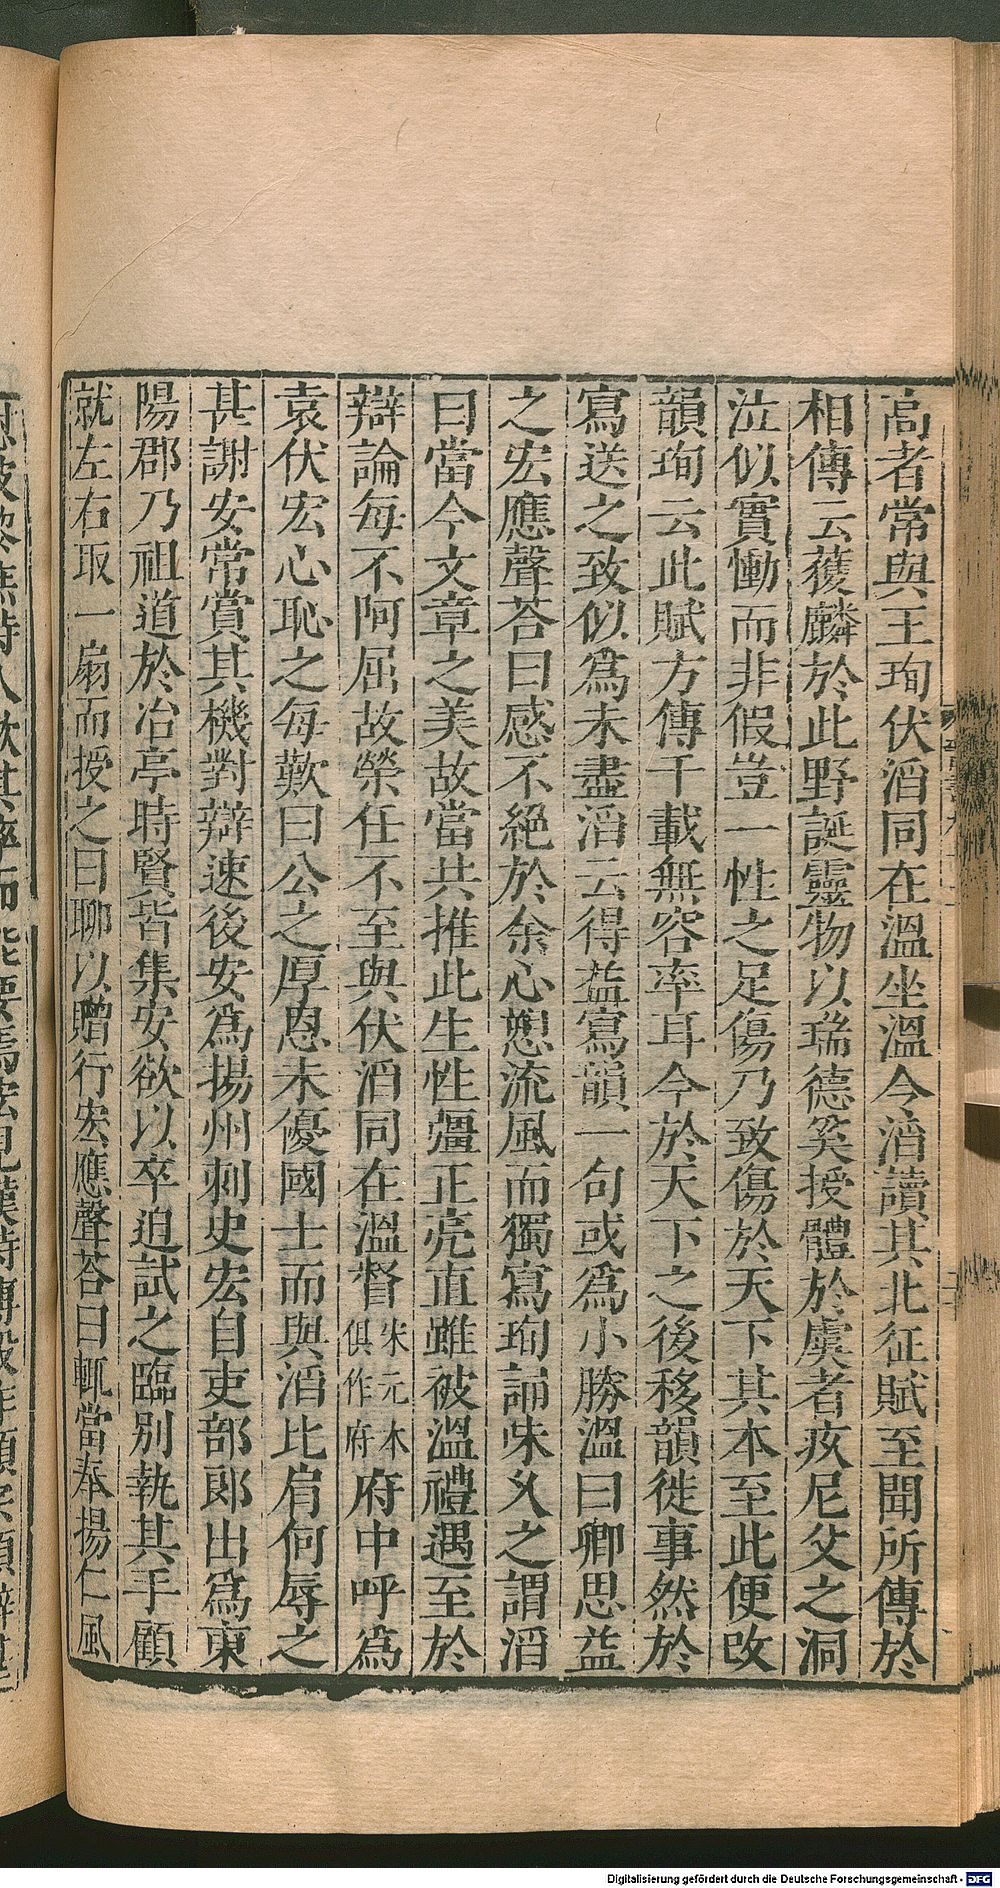 高者常與王珣伏滔同在溫坐溫令滔讀其北征賦至聞所傳於
相傳云獲麟於此野誕靈物以瑞德奚授體於虞者疚尼父之洞
泣似實慟而非假豈一性之足傷乃致傷於天下其本至此便改
韻珣云此賦方傳千載無容率耳今於天下之後移韻徙事然於
寫送之致似爲未盡滔云得益寫韻一句或爲小勝溫曰卿思益
之宏應聲荅曰感不絕於余心愬流風而獨寫珣誦味乆之謂滔
曰當今文章之美故當共推此生性彊正亮直雖被溫禮遇至於
辯論每不阿屈故榮任不至與伏滔同在溫督宋元本俱作府府中呼爲
袁伏宏心恥之每歎曰公之厚恩未優國士而與滔比肩何辱之
甚謝安常賞其機對辯速後安爲揚州刺史宏自吏部郎出爲東
陽郡乃祖道於冶亭時賢皆集安欲以卒迫試之臨別執其手顧
就左右取一扇而授之曰聊以贈行宏應聲荅曰輒當奉揚仁風
Digitalisierung gefördert durch die Deutsche Forschungsgemeinschaft - DFG